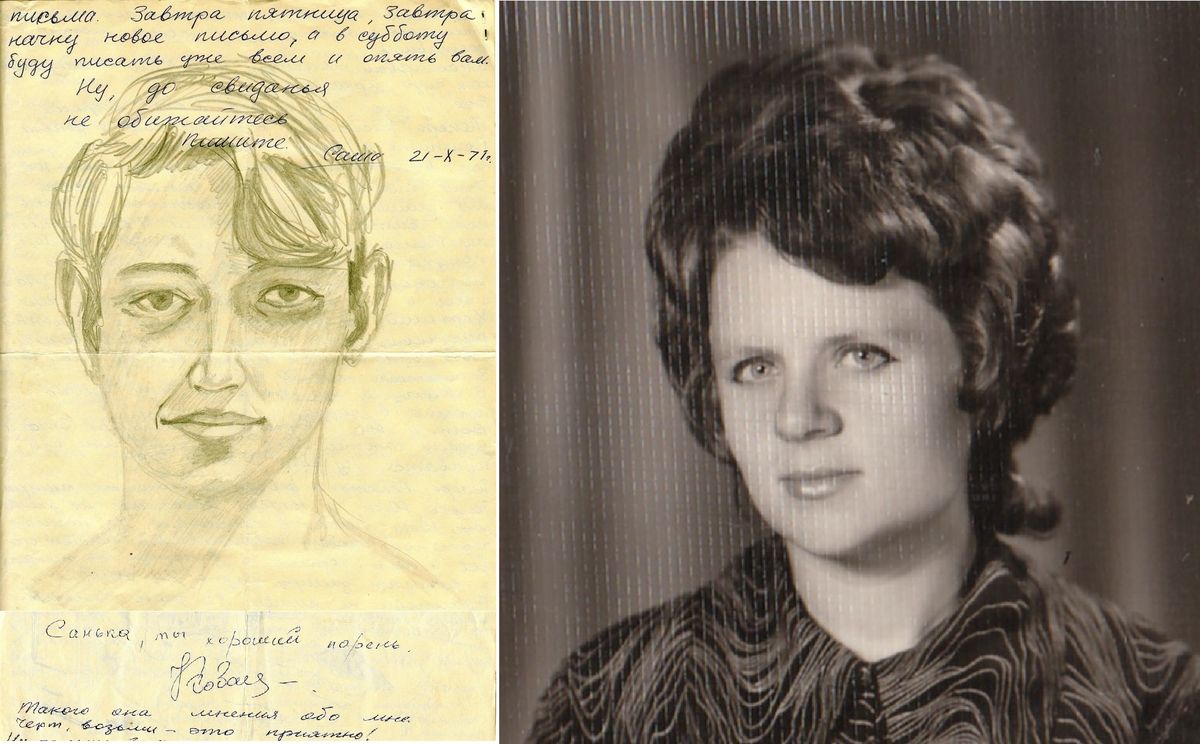 письма. Завтра пятница, Завтра
начну новое письмо, а в субботу !
буду писать уже всем и опять вам.
Ну, до свиданья
не обижайтесь
Пишите.
Саша 21-X-71г.
Санька, ты хороший парень.
Такого она мнения обо мне.
Черт, возьми – это приятно!